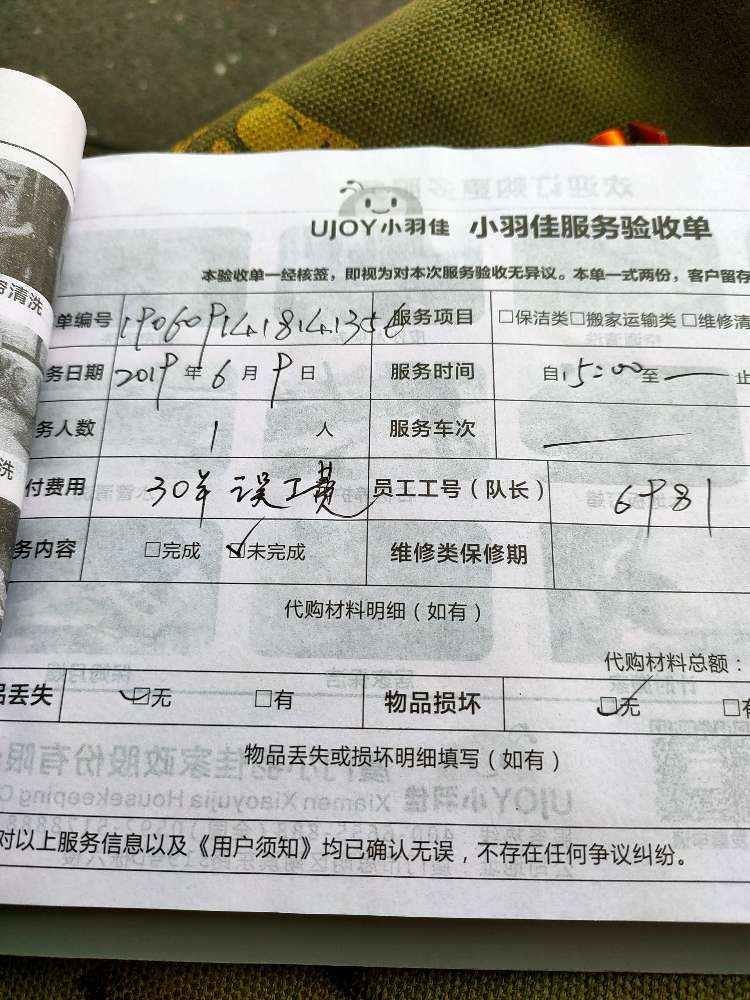 UJOY小羽佳 小羽佳服务验收单
本验收单一经核签，即视为对本次服务验收无异议。本单一式两份，客户留存
单编号 190609141814135 服务项目 □保洁类□搬家运输类 □维修清
务日期 2019 年 6 月 9 日 服务时间 自 15:00 至 — 止
务人数 1 人 服务车次 —
付费用 30 误工费 员工工号（队长） 6981
务内容 □完成 ☑未完成 维修类保修期
代购材料明细（如有）
代购材料总额：
品丢失 ☑无 □有 物品损坏 ☑无 □有
物品丢失或损坏明细填写（如有）
对以上服务信息以及《用户须知》均已确认无误，不存在任何争议纠纷。
清洗
洗